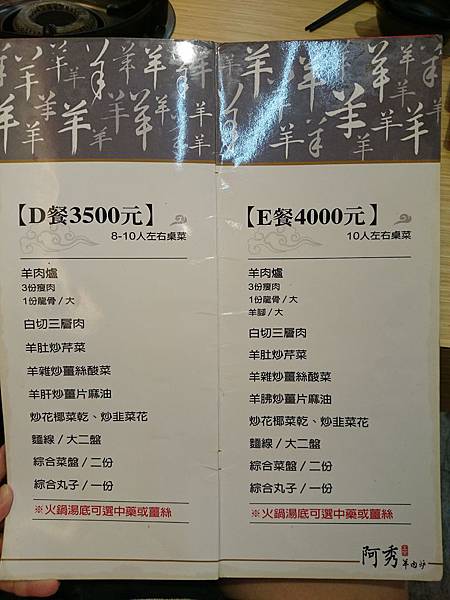 【D餐3500元】
8-10人左右桌菜
羊肉爐
3份瘦肉
1份龍骨/大
白切三層肉
羊肚炒芹菜
羊雜炒薑絲酸菜
羊肝炒薑片麻油
炒花椰菜乾、炒韭菜花
麵線/大二盤
綜合菜盤/二份
綜合丸子/一份
※火鍋湯底可選中藥或薑絲
【E餐4000元】
10人左右桌菜
羊肉爐
3份瘦肉
1份龍骨/大
羊腳/大
白切三層肉
羊肚炒芹菜
羊雜炒薑絲酸菜
羊胇炒薑片麻油
炒花椰菜乾、炒韭菜花
麵線/大二盤
綜合菜盤/二份
綜合丸子/一份
※火鍋湯底可選中藥或薑絲
阿秀羊肉爐